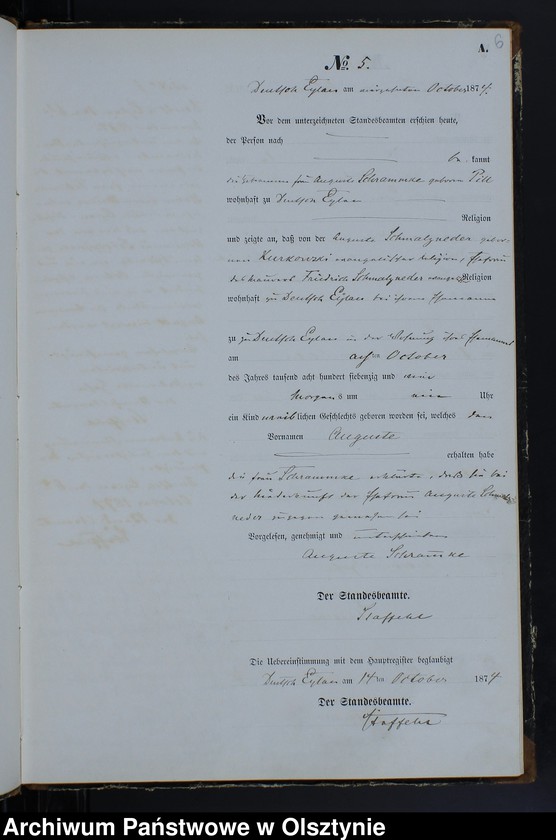 6
A.
No. 5.
Deutsch Eylau am October 1874.
Vor dem unterzeichneten Standesbeamten erschien heute,
der Person nach
be kannt
die Hebamme frau Auguste Schrammke geboren Pill
wohnhaft zu Deutsch Eylau
Religion
und zeigte an, daß von der Auguste Schmalzneder gebor-
nen Kurkowski evangelischer Religion, Ehefrau
des Friedrich Schmalzneder Religion
wohnhaft zu Deutsch Eylau bei ihrem Ehemanne
zu zu Deutsch Eylau in der Wohnung ihres Ehemannes
am October
des Jahres tausend acht hundert siebenzig und
Morgens um Uhr
ein Kind weib lichen Geschlechts geboren worden sei, welches den
Vornamen Auguste
erhalten habe
die frau Schrammke erklärte, daß sie bei
der Niederkunft der Ehefrau Auguste Schmalz-
neder zugegen gewesen sei
Vorgelesen, genehmigt und unterschrieben
Auguste Schramke
Der Standesbeamte.
Staffehl
Die Uebereinstimmung mit dem Hauptregister beglaubigt
Deutsch Eylau am 14ten October 1874
Der Standesbeamte.
Staffehl
Archiwum Państwowe w Olsztynie